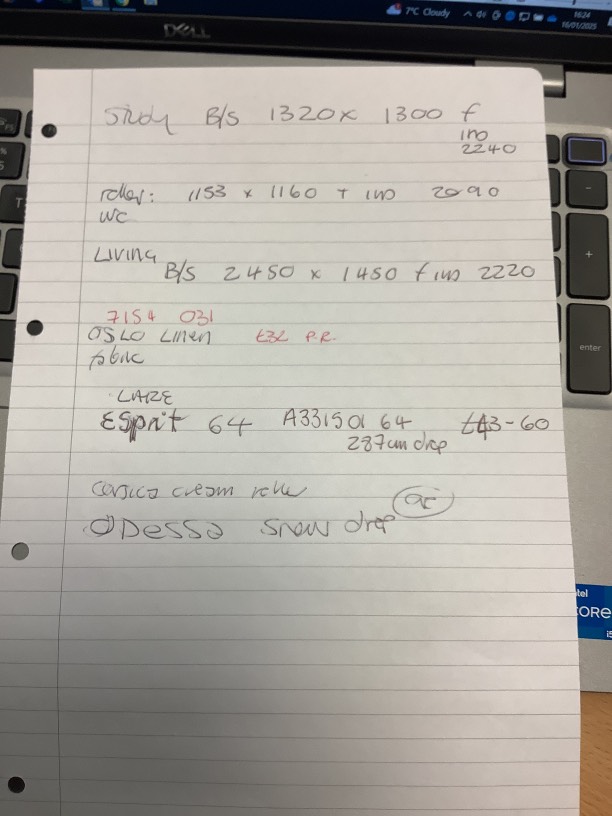 7°C Cloudy
16:24
16/01/2025
DELL
Study B/S 1320 x 1300 f
ins
2240
roller: 1153 x 1160 T ins 2090
WC
Living
B/S 2450 x 1450 f ins 2220
7154 031
OSLO Linen £32 P.R.
fabric
LARE
Esprit 64 A331501 64 £43-60
287cm drop
Corsica cream roller
Odessa snow drop
enter
intel
CORE
i5